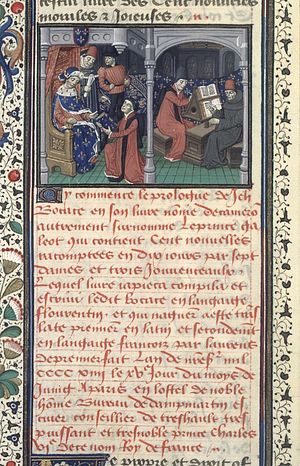 morales & Joieuses
Cy commence le prologue de Jeh
Bocace en son livre nōme decameron
autrement surnomme Le prince ga
leot qui contient Cent nouuelles
racomptees en dix iours par sept
dames et trois Jouuenceaulx
quel liure iapieca compila et
escriui ledit Bocace en langaige
flourentin et qui naguer a este trās
late premier en latin et secondemt
en langaige francoiz par laurens
de premierfait Lan de mesſ mil
CCCC xiiii le xv Jour du moys de
Juing A paris en lostel de noble
hōme Bureau de dampmartin es
cuier conseillier de treshault tres
puissant et tresnoble prince Charles
vi de ce nom Roy de france